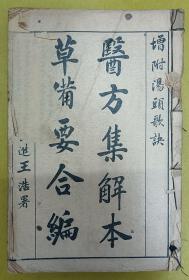 增附湯頭歌訣
醫方集解本
草備要合編
王浩署